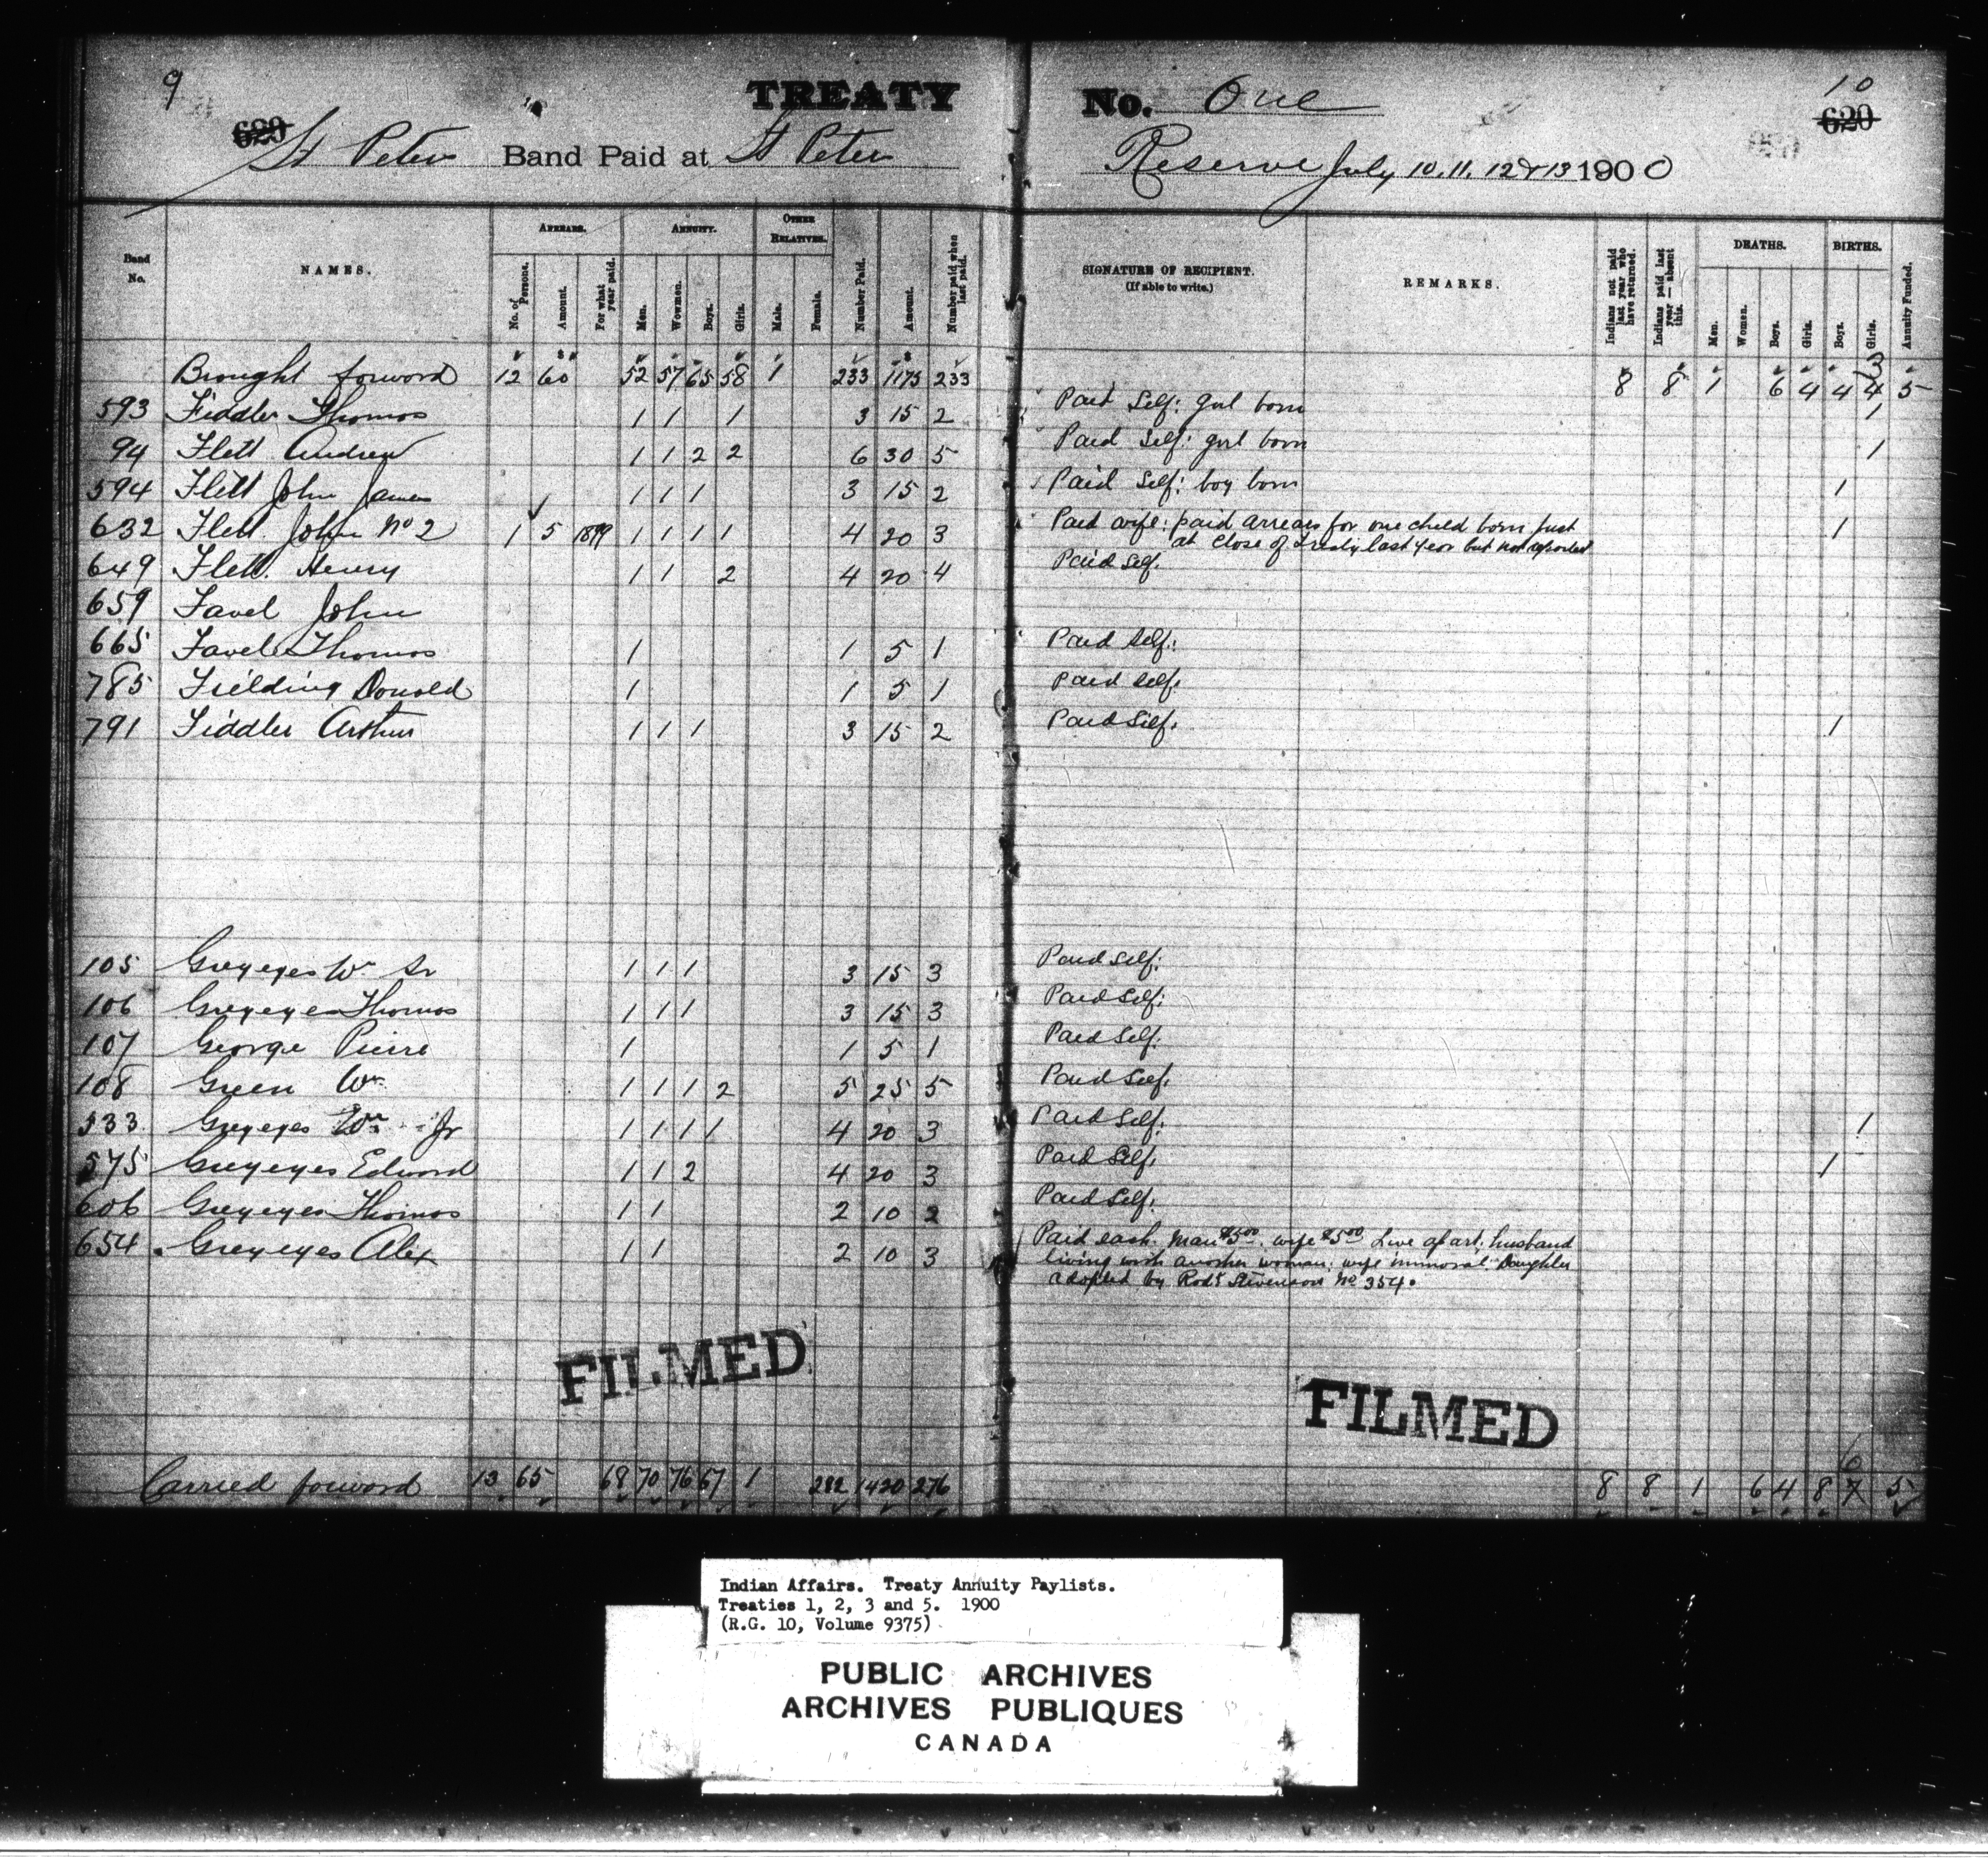 9
TREATY No. One
10
620
620
St Peter Band Paid at St Peter Reserve July 10. 11. 12 & 13 1900
Band No.
NAMES.
ARREARS.
No. of Persons.
Amount.
For what year paid.
ANNUITY.
Men.
Women.
Boys.
Girls.
OTHER RELATIVES.
Male.
Female.
Number Paid.
Amount.
Number paid when last paid.
SIGNATURE OF RECIPIENT.
(If able to write.)
REMARKS.
Indians not paid last year who have returned.
Indians paid last year — absent this.
DEATHS.
Men.
Women.
Boys.
Girls.
BIRTHS.
Boys.
Girls.
Annuity Funded.
3
Brought forword 12 60 52 57 65 58 1 233 1175 233 8 8 1 6 4 4 4 5
593 Fiddler Thomas 1 1 1 3 15 2 Paid Self: girl born 1
94 Flett Andrew 1 1 2 2 6 30 5 Paid Self: girl born 1
594 Flett John James 1 1 1 3 15 2 Paid Self: boy born 1
632 Flett John No 2 1 5 1899 1 1 1 1 4 20 3 Paid wife: paid arrears for one child born just 1
at close of Treaty last year but not reported
649 Flett Henry 1 1 2 4 20 4 Paid Self.
659 Favel John
665 Favel Thomas 1 1 5 1 Paid Self:
785 Fielding Donald 1 1 5 1 Paid Self.
791 Fiddler Arthur 1 1 1 3 15 2 Paid Self. 1
105 Greyeyes Wm Sr 1 1 1 3 15 3 Paid Self:
106 Greyeyes Thomas 1 1 1 3 15 3 Paid Self:
107 George Pierre 1 1 5 1 Paid Self.
108 Green Wm 1 1 1 2 5 25 5 Paid Self.
533 Greyeyes Wm Jr 1 1 1 1 4 20 3 Paid Self. 1
575 Greyeyes Edward 1 1 2 4 20 3 Paid Self. 1
606 Greyeyes Thomas 1 1 2 10 2 Paid Self.
654 Greyeyes Alex 1 1 2 10 3 Paid each. Man $5.00. wife $5.00 Live apart; husband
living with another woman; wife immoral. Daughter
adopted by Rodk Stevenson No 354.
FILMED
FILMED
6
Carried forword 13 65 68 70 76 67 1 282 1420 276 8 8 1 6 4 8 7 5
Indian Affairs. Treaty Annuity Paylists.
Treaties 1, 2, 3 and 5. 1900
(R.G. 10, Volume 9375)
PUBLIC ARCHIVES
ARCHIVES PUBLIQUES
CANADA